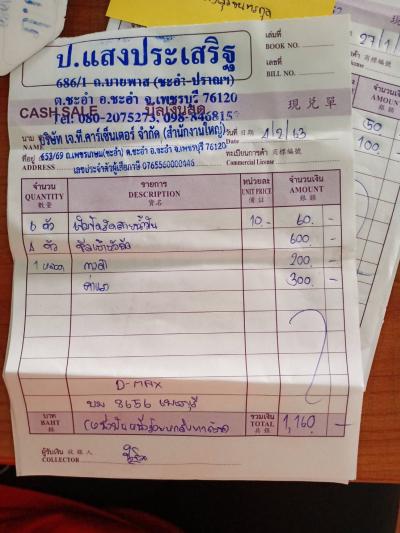 เล่มที่
BOOK NO.
เลขที่
BILL NO.
ป.แสงประเสริฐ
686/1 ถ.บายพาส (ชะอำ-ปราณฯ)
ต.ชะอำ อ.ชะอำ จ.เพชรบุรี 76120
โทร. 080-2075273, 098-8468153
CASH SALE บิลเงินสด 現兌單
นาม NAME บริษัท เจ.ที.คาร์เซ็นเตอร์ จำกัด (สำนักงานใหญ่) วันที่ 日期 Date 1/2/63
ที่อยู่ ADDRESS 653/69 ถ.เพชรเกษม(ชะอำ) ต.ชะอำ อ.ชะอำ จ.เพชรบุรี 76120 ทะเบียนการค้า 商標編號 Commercial License
เลขประจำตัวผู้เสียภาษี 0765560000446
จำนวน รายการ หน่วยละ จำนวนเงิน
QUANTITY DESCRIPTION UNIT PRICE AMOUNT
數量 貨名 備註 銀額
6 ตัว 10 - 60 -
4 ตัว 600 -
1 200 -
300 -
D-MAX
บม 8656 เพชรบุรี
บาท BAHT รวมเงิน TOTAL 1,160 -
ผู้รับเงิน 收銀人
COLLECTOR
27/1
商標編號
จำนวนเงิน
AMOUNT
銀額
50
100